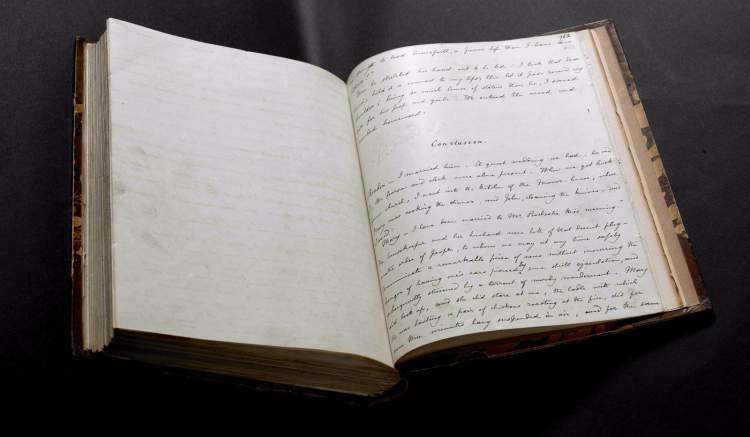 to lead henceforth, a purer life than I have done
Then he stretched his hand out to be led. I took that dear
hand, held it a moment to my lips, then let it pass round my
shoulder; being so much lower of stature than he, I served
for his prop and guide. We entered the wood and
wended homeward.
Conclusion.
Reader — I married him. A quiet wedding we had: he and
I, the parson and clerk were alone present. When we got back
from church, I went into the kitchen of the Manor-house, where
Mary was cooking the dinner, and John, cleaning the knives, and
I said:
"Mary — I have been married to Mr Rochester this morning."
The housekeeper and her husband were both of that decent phleg-
matic order of people, to whom one may at any time safely
communicate a remarkable piece of news without incurring the
danger of having one's ears pierced by some shrill ejaculation, and
subsequently stunned by a torrent of wordy wonderment. Mary
did look up, and she did stare at me, the ladle with which
she was basting a pair of chickens roasting at the fire, did for
some three minutes hang suspended in air, and for the same